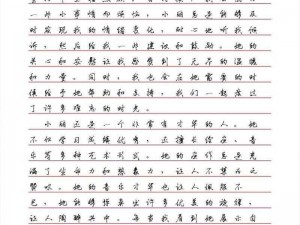 一些小事情而烦恼，小丽总是能够及
时发现我的情绪变化，耐心地听我倾
诉，然后给我一些建议和鼓励。她的
关心和安慰让我感到了无尽的温暖
和力量。同时，我也会在她需要的时
候给予她帮助和支持，我们一起度过
了许多难忘的时光。
小丽还是一个非常有才华的人。她
不仅学习成绩优秀，还擅长绘画、音
乐等多种艺术形式。她的画作总是充
满了生命力和想象力，让人不禁为之
赞叹。她的音乐才华也让人佩服不
已，她能够弹奏出许多优美的旋律，
让人陶醉其中。每当我看到她展示自